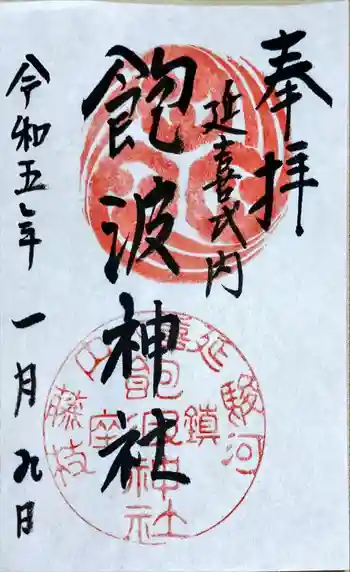 奉拝
延喜式内
飽波神社
令和五年 一月九日
駿河
延喜
鎮座
藤枝
飽波神社